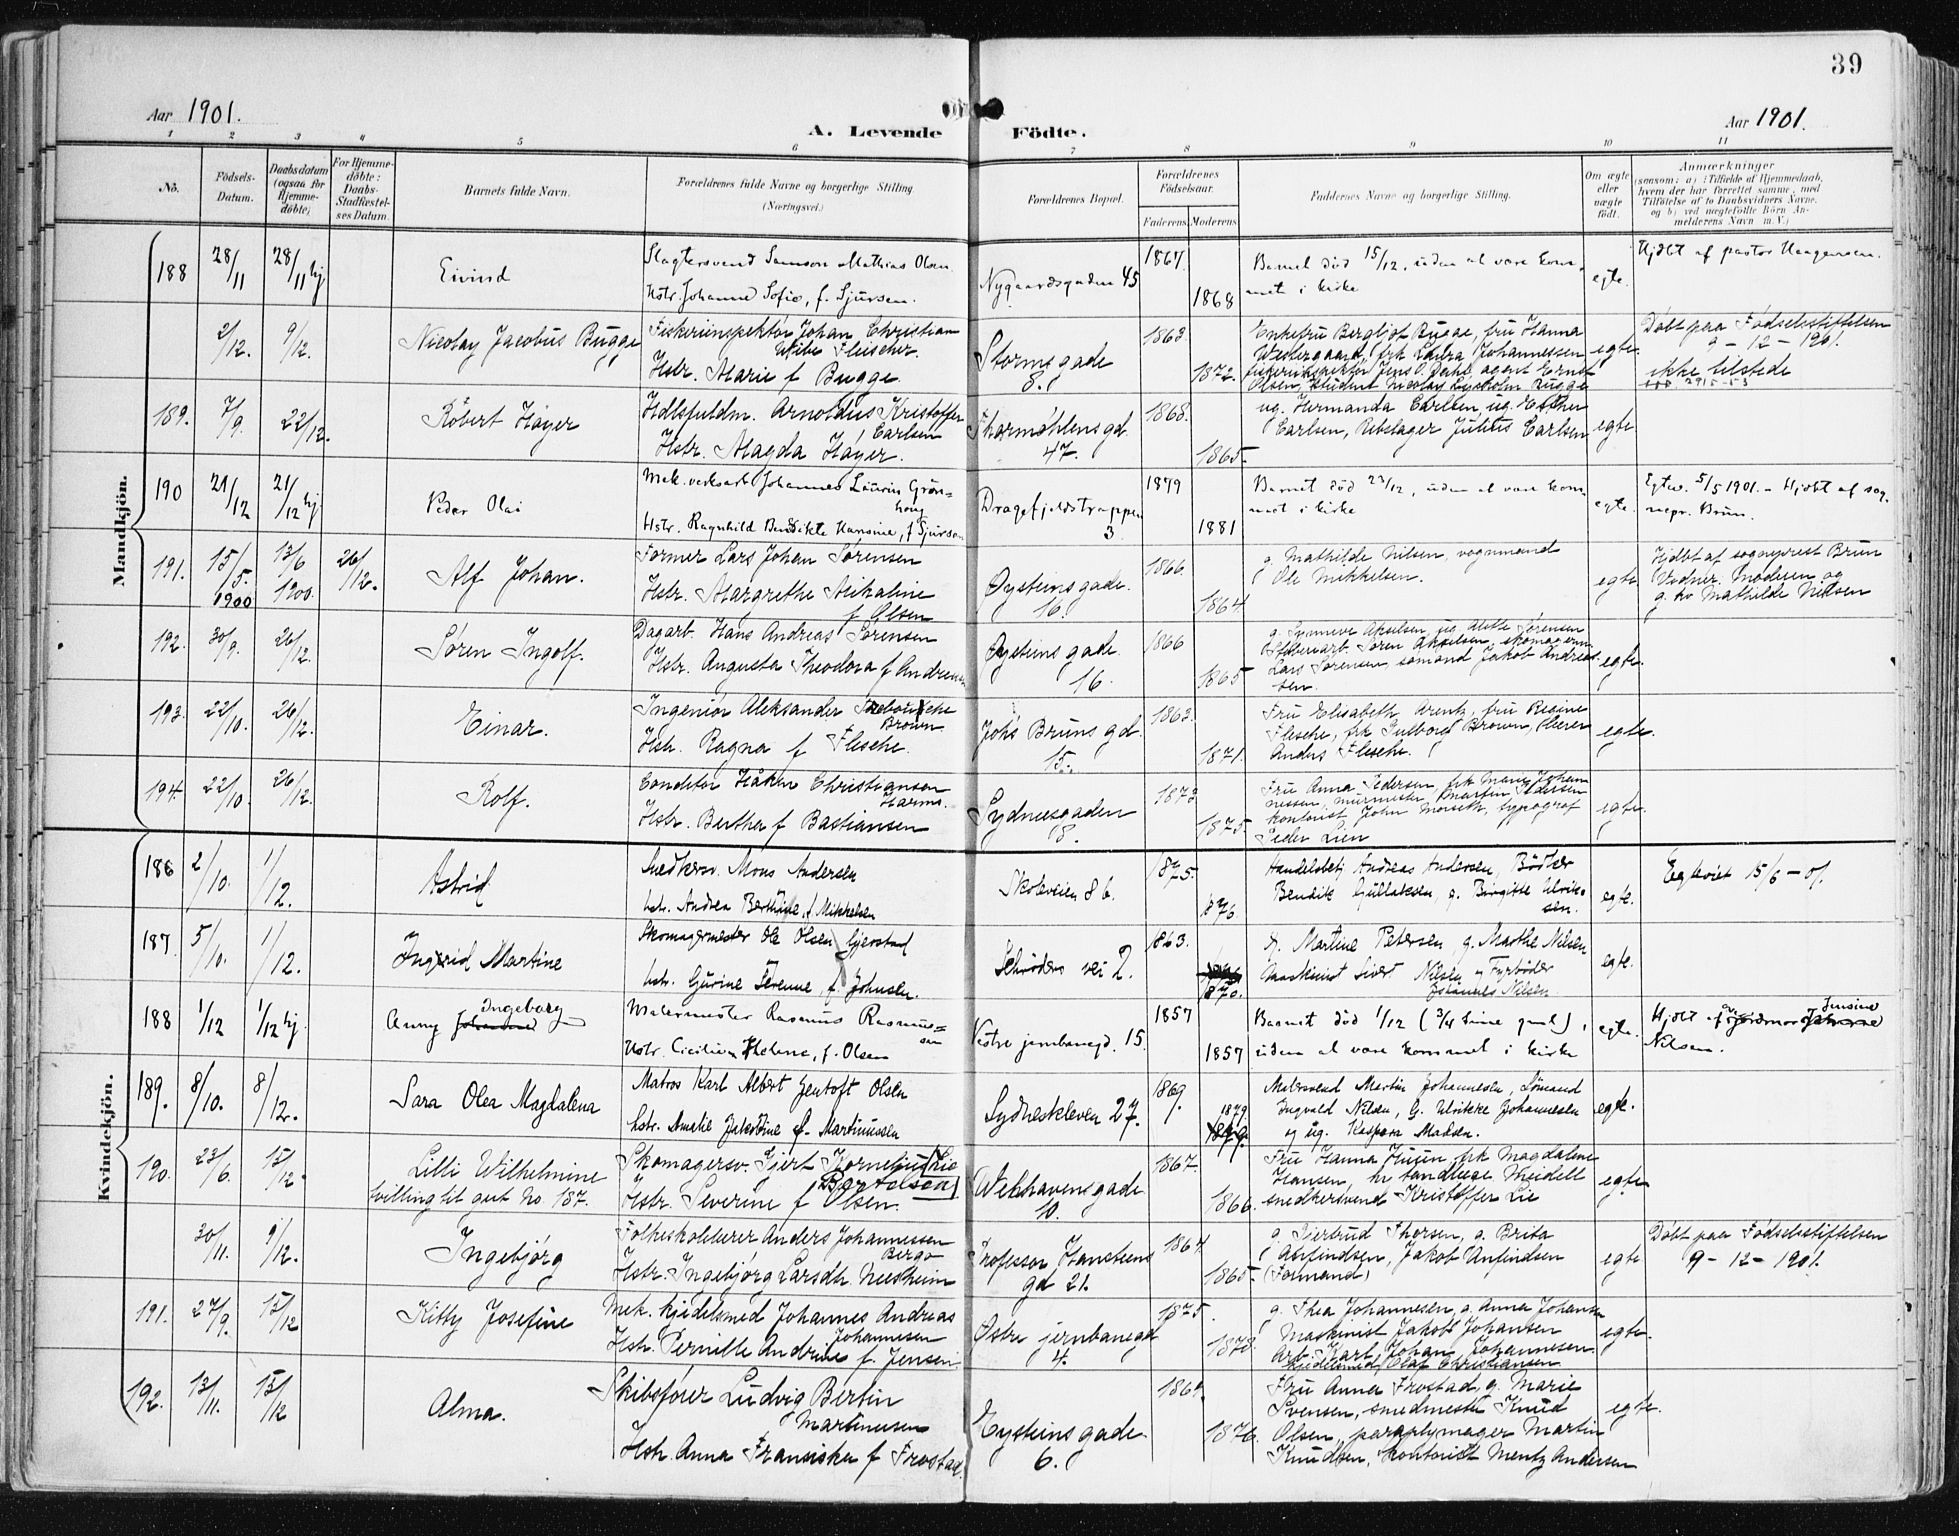 39
Aar 1901.
A. Levende Födte.
Aar 1901.
1 2 3 4 5 6 7 8 9 10 11
No.
Födsels-Datum.
Daabsdatum (ogsaa for Hjemme-döbte)
For Hjemme-döbte: Daabs-Stadfæstel-ses Datum.
Barnets fulde Navn.
Forældrenes fulde Navne og borgerlige Stilling.
(Næringsvei.)
Forældrenes Bopæl.
Forældrenes Födselsaar.
Faderens Moderens
Faddernes Navne og borgerlige Stilling.
Om ægte eller uægte födt.
Anmærkninger
(saasom: a) i Tilfælde af Hjemmedaab,
hvem der har forrettet samme, med
Tilföielse af to Daabsvidners Navne,
og b) ved uægtefödte Börn An-
melderens Navn m. V.)
Mandkjön.
188 28/11 28/11 hj Eivind
Slagtersvend Samson Mathias Olsen
Hstr. Johanne Sofie, f. Sjursen.
Nygaardsgaden 45
1867. 1868
Barnet död 15/12, uden at være kom-
met i kirke
egte.
Hjdbt af pastor Haagensen.
2/12. 9/12. Nicolay Jacobus Bugge
Fiskeriinspektør Johan Christian
Wibe Fleischer
Hstr. Marie f Bugge.
Stormsgade
8.
1863 1872.
Enkefru Bergljot Bugge, fru Hanna
Westergaard, frk Johannessen
fiskeriinspektør Jens O. Dahl, agent Ernst
Olsen, student Nicolay Bugge
egte.
Døbt paa Fødselsstiftelsen
9-12-1901.
ikke tilstede
189. 7/9. 22/12. Robert Høyer
Hdlsfuldm. Arnoldus Kristoffer
Carlsen
Hstr. Magda Høyer.
Thormøhlensgd.
47.
1868. 1865.
ug. Hermanda Carlsen, ug. Esther
Carlsen, Rebslager Julius Carlsen
egte
190 21/12 21/12 hj Peder Olai
Mek. verksarb Johannes Laurin Grøn-
haug
Hstr. Ragnhild Bendikte Hansine, f Sjursen
Dragefjeldstrappen
3.
1879 1881
Barnet död 23/12, uden at være kom-
met i kirke
egte.
Egtev. 5/5 1901. - Hjdbt af sog-
nepr. Brun.
191. 15/5. 1900 13/6 1900. 26/12. Alf Johan.
Former Lars Johan Sørensen
Hstr. Margrethe Mikaline
f Olsen
Øysteinsgade.
16.
1866. 1864.
g. Mathilde Nilsen, vognmand
Ole Mikkelsen.
egte
Hjdbt af sogneprest Brun
Vidner: Moderen og
g. kv Mathilde Nilsen
192. 30/9. 26/12. Søren Ingolf.
Dagarb. Hans Andreas Sørensen
Hstr. Augusta Theodora f Andresen
Øysteinsgade.
16.
1866 1865
g. Synneve Akselsen, ug. Mette Sørensen
Søren Akselsen, skomagersv
Lars Sørensen, sømand Jakob Andreas-
sen.
egte.
193. 22/10. 26/12. Einar.
Ingeniør Aleksander
Brown
Hstr. Ragna f Flesche.
Johs Brunsgd.
15.
1863. 1871.
Fru Elisabeth Arentz, fru Regine
Flesche, frk Gulborg Brown,
Anders Flesche.
egte.
194. 22/10. 26/12. Rolf.
Conditor Håken Christianson
Harms.
Hstr. Bertha f Bastiansen
Sydnesgaden
18.
1873 1875.
Fru Anna Pedersen, frk Marie Johan-
nessen, murmester Martin Pedersen
kontorist John Morseth, typograf
Peder Lien
egte.
Kvindekjön.
186 2/10. 1/12. Astrid
Snedkersv. Mons Andersen
Hstr. Andrea Berthine, f. Mikkelsen
Skoleveien 8 b.
1875. 1876
Handelsbetj Andreas Andersen, Bödker
Bendik Gullaksen, g. Birgitte Ulrik-
sen.
egte.
Egteviet 15/6-01.
187 5/10. 1/12. Ingrid Martine
Skomagermester Ole Olsen Gjerstad
Hstr. Gurine Serenne, f. Johnsen.
Schrøders vei 2.
1863. 1870.
g. Martine Petersen g. Marthe Nilsen
Maskinist Sivert Nilsen og Fyrbøder
Johannes Nilsen
egte.
188 1/12 1/12 hj Anny Ingeborg
Malermester Rasmus Rasmus-
sen
Hstr. Cicilie Helene, f. Olsen
Vestre jernbanegd. 15.
1857 1857
Barnet död 1/12 (3/4 time gml),
uden at være kommet i kirke
egte.
Hjdbt af jordmor Jensine
Nilsen.
189. 8/10. 8/12. Sara Olea Magdalena
Matros Karl Albert Gentoft Olsen
Hstr. Amalie Jakobine f. Martinussen
Sydneskleven 27.
1869. 1879
Malersvend Martin Johannesen, Sømand
Ingvald Nilsen, G. Ulrikke Johannesen
og ug. Kaspara Madsen.
egte.
190. 23/6. 15/12. Lilli Wilhelmine
tvilling til gut No 187.
Skomagersv. Gjert Kornelius Lie
Bertelsen
Hstr. Severine f Olsen.
Welhavensgade
10.
1867. 1866.
Fru Hanna Husin, frk Magdalene
Hansen, hr tandlæge Meidell
snedkersvend Kristoffer Lie
egte
30/11. 9/12. Ingebjørg
Folkeskolelærer Anders Johannessen
Bergo
Hstr. Ingebjørg Larsdtr Neesheim
Professor Hansteens
gd 21.
1864. 1865.
g. Gjertrud Thorsen, g. Brita
Anfindsen, Jakob Anfindsen
(Formand)
egte
Døbt paa Fødselsstiftelsen
9-12-1901.
191. 27/9. 15/12 Kitty Josefine
Mek. kjedelsmed Johannes Andreas
Johannesen
Hstr. Pernille Andrine f. Jensen
Østre jernbanegd
4.
1875. 1878.
g. Thea Johannesen, g. Anna Johansen
Maskinist Jakob Johansen
Arb. Karl Johan Johannesen
kjedelsmed Olaf Christiansen
egte.
192. 13/11. 15/12 Alma.
Skibsfører Ludvig Bertin
Martinussen
Hstr. Anna Fransiska f Frostad.
Eysteinsgade
6.
1864. 1876.
Fru Anna Frostad, g. Marie
Svensen, smedmester Knud
Olsen, paraplymager Martin
Knudsen, kontorist Mentz Andersen
egte.